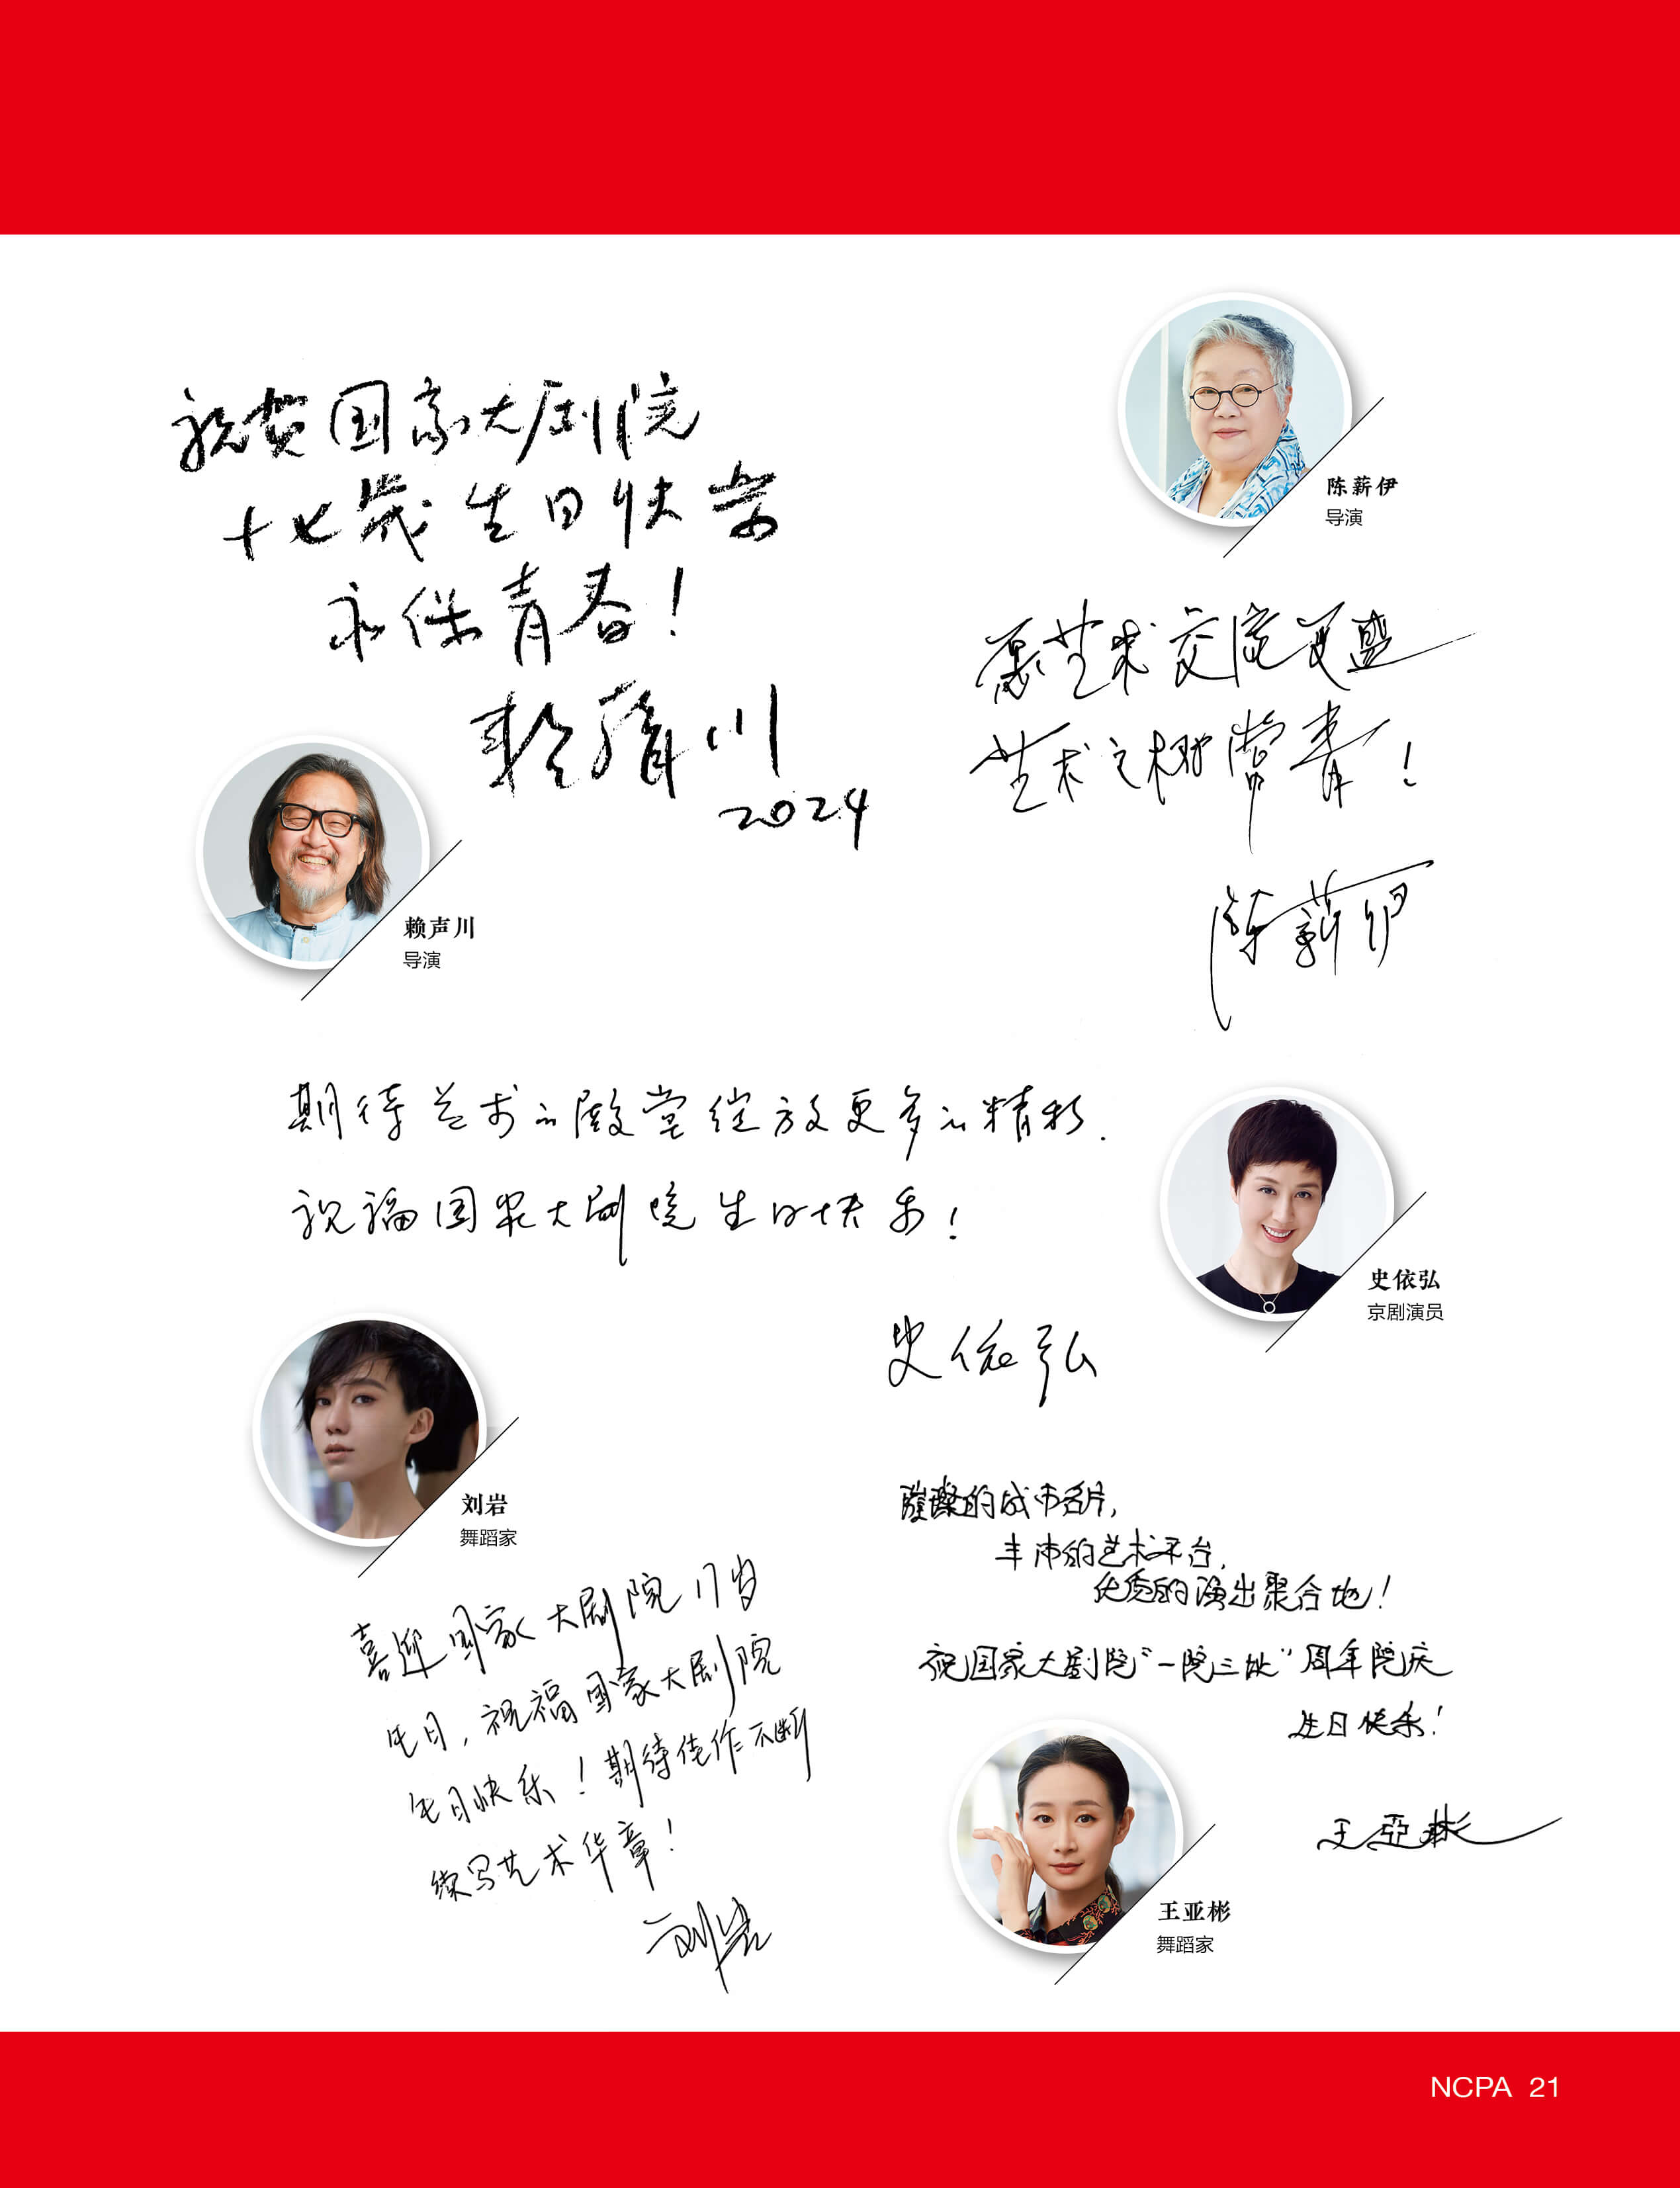 祝贺国家大剧院
十七歳生日快乐
永保青春!
賴聲川
2024
赖声川
导演
陈薪伊
导演
愿艺术交流更盛
艺术之树常青!
陈薪伊
期待艺术的殿堂绽放更多的精彩.
祝福国家大剧院生日快乐!
史依弘
史依弘
京剧演员
刘岩
舞蹈家
喜迎国家大剧院17岁
生日,祝福国家大剧院
生日快乐!期待佳作不断
续写艺术华章!
刘岩
璀璨的城市名片,
丰沛的艺术平台,
优质的演出聚合地!
祝国家大剧院“一院三址”周年院庆
生日快乐!
王亞彬
王亚彬
舞蹈家
NCPA 21